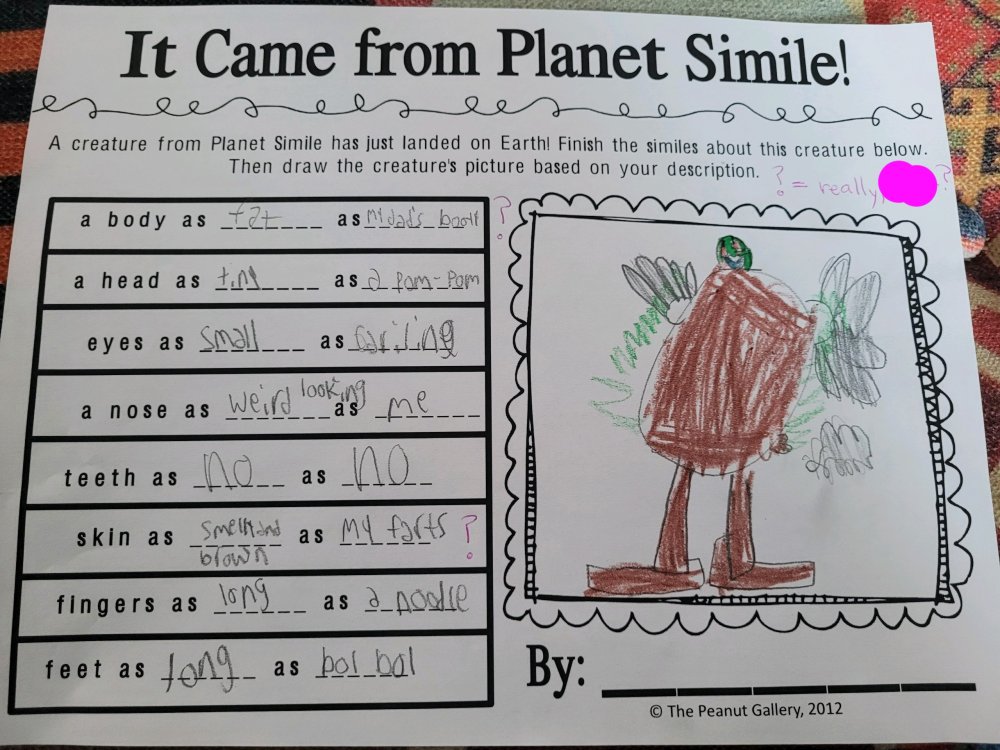 It Came from Planet Simile!
A creature from Planet Simile has just landed on Earth! Finish the similes about this creature below.
Then draw the creature's picture based on your description.
? = really, ?
a body as fat as my dad's ?
a head as tiny as a pom-pom
eyes as small as
a nose as weird looking as me
teeth as no as no
skin as smelly and brown as my farts ?
fingers as long as a noodle
feet as long as
By:
© The Peanut Gallery, 2012